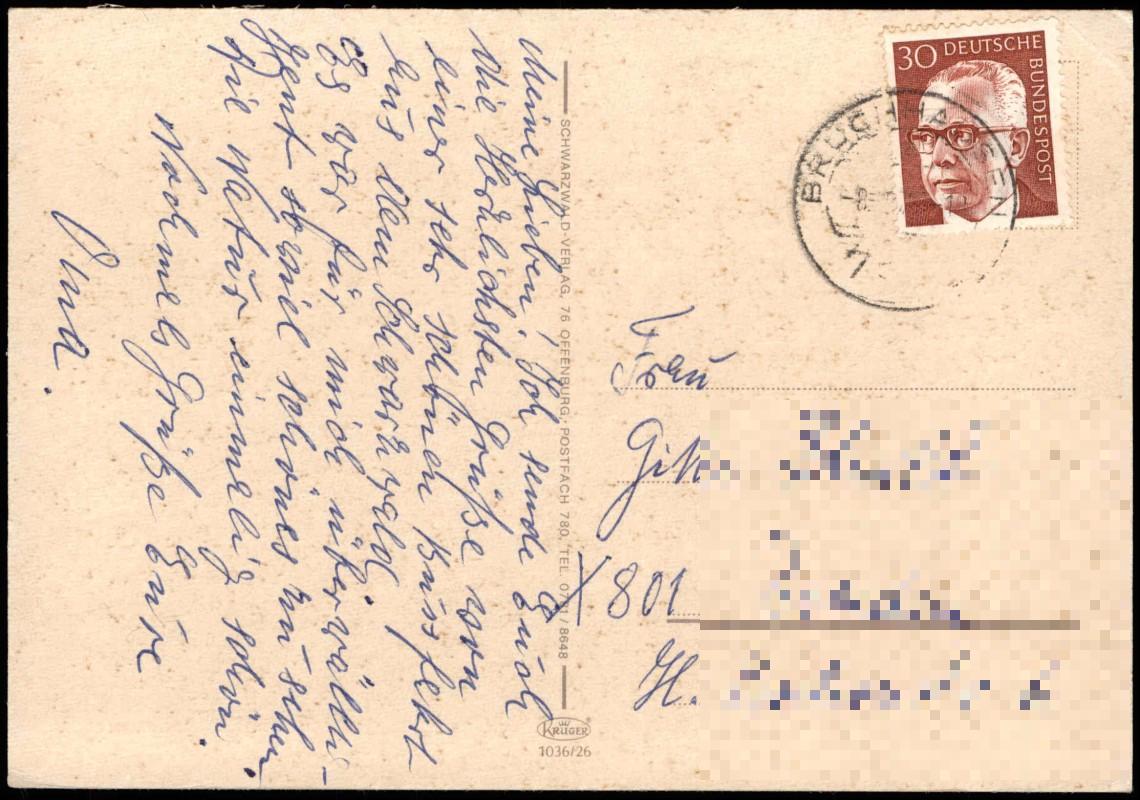 Meine Lieben, Ich sende Euch
die Herzlichsten Grüße von
einer sehr schönen Bussfahrt
aus dem Schwarzwald.
Es war für mich überwälti-
gent soviel schönes zu sehen.
Die Natur einmalig schön.
Nochmels Grüße Eure
SCHWARZWALD-VERLAG, 76 OFFENBURG, POSTFACH 780, TEL. 0781/8648
KRÜGER
1036/26
30 DEUTSCHE
BUNDESPOST
BRUCHHAUSEN
Frau
801
H.